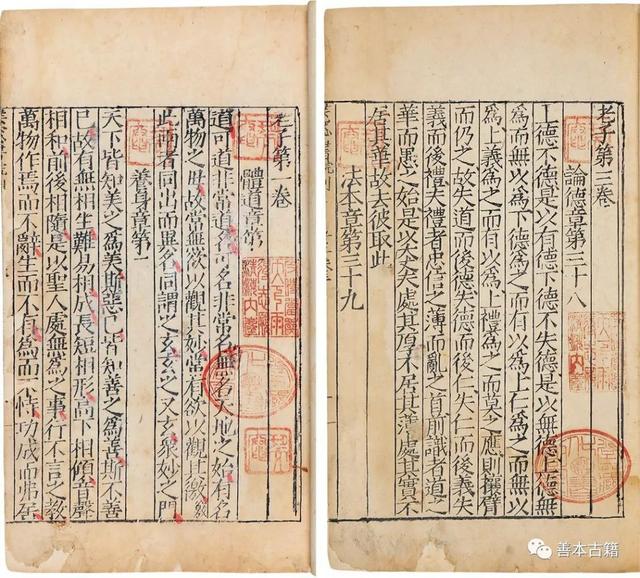 老子第一卷
體道章第一
道可道非常道名可名非常名無名天地之始有名
萬物之母故常無欲以觀其妙常有欲以觀其徼
此兩者同出而異名同謂之玄玄之又玄衆妙之門
養身章第二
天下皆知美之為美斯惡已皆知善之為善斯不善
已故有無相生難易相成長短相形高下相傾音聲
相和前後相隨是以聖人處無為之事行不言之教
萬物作焉而不辭生而不有為而不恃功成而弗居
老子第三卷
論德章第三十八
上德不德是以有德下德不失德是以無德上德無
為而無以為下德為之而有以為上仁為之而無以
為上義為之而有以為上禮為之而莫之應則攘臂
而仍之故失道而後德失德而後仁失仁而後義失
義而後禮夫禮者忠信之薄而亂之首前識者道之
華而愚之始是以大丈夫處其厚不居其薄處其實不
居其華故去彼取此
法本章第三十九
善本古籍